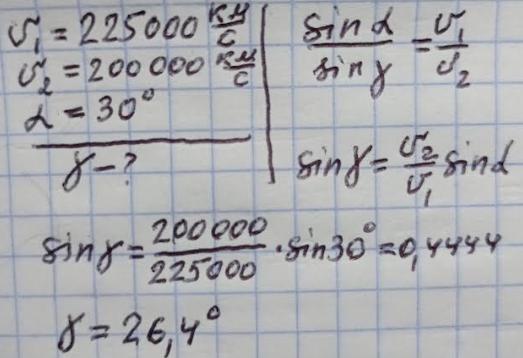 υ₁ = 225000 км/с
υ₂ = 200000 км/с
α = 30°
γ – ?
sin α / sin γ = υ₁ / υ₂
sin γ = υ₂/υ₁ sin α
sin γ = 200000/225000 · sin 30° = 0,4444
γ = 26,4°